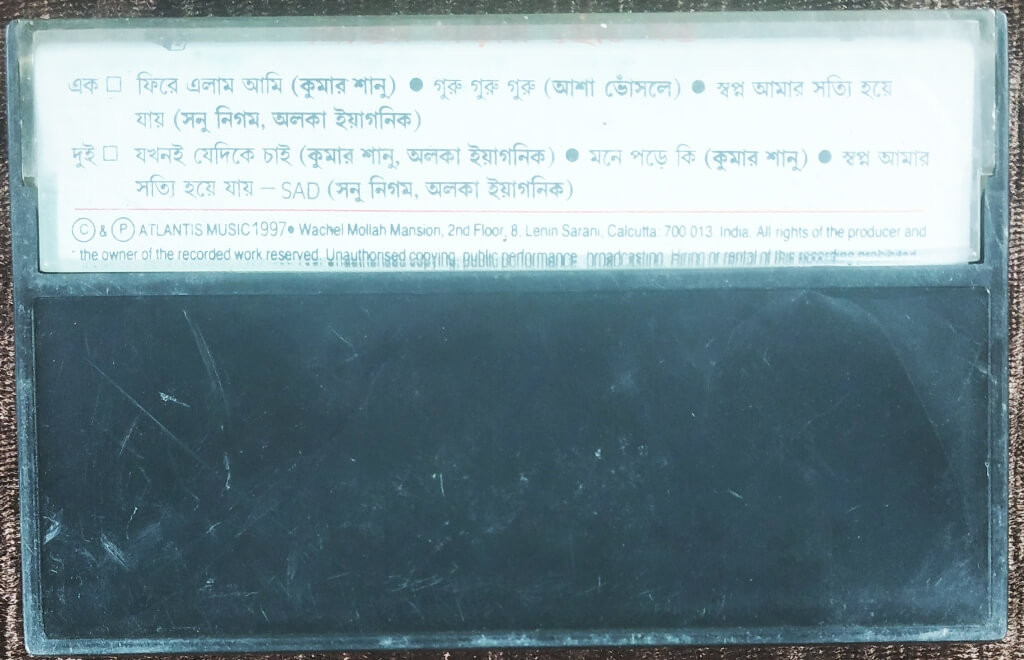 এক □ ফিরে এলাম আমি (কুমার শানু) ● গুরু গুরু গুরু (আশা ভোঁসলে) ● স্বপ্ন আমার সত্যি হয়ে
যায় (সনু নিগম, অলকা ইয়াগনিক)
দুই □ যখনই যেদিকে চাই (কুমার শানু, অলকা ইয়াগনিক) ● মনে পড়ে কি (কুমার শানু) ● স্বপ্ন আমার
সত্যি হয়ে যায় – SAD (সনু নিগম, অলকা ইয়াগনিক)
Ⓒ & Ⓟ ATLANTIS MUSIC 1997● Wachel Mollah Mansion, 2nd Floor, 8, Lenin Sarani, Calcutta 700 013 India. All rights of the producer and
the owner of the recorded work reserved. Unauthorised copying, public performance, broadcasting, Hiring or rental of this recording prohibited